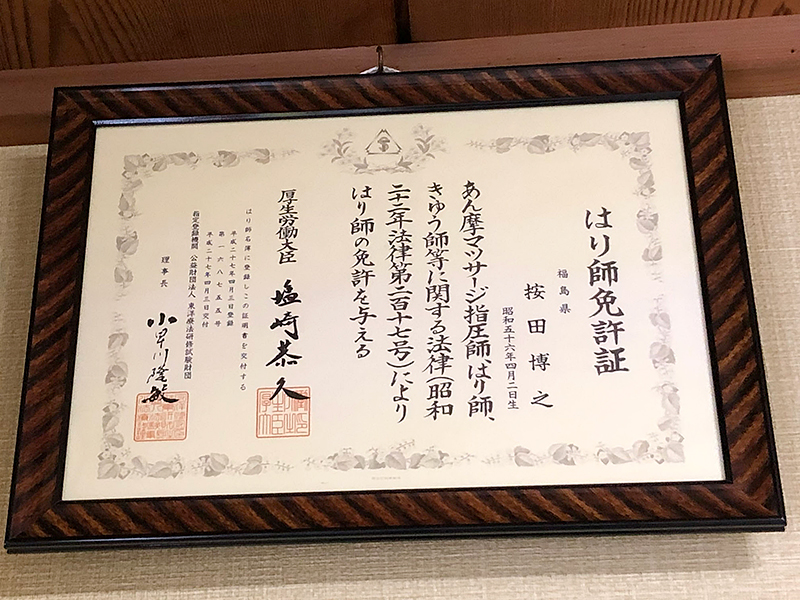 はり師免許証
福島県
按田博之
昭和五十六年四月二日生
あん摩マツサージ指圧師、はり師、
きゆう師等に関する法律（昭和
二十二年法律第二百十七号）により
はり師の免許を与える
厚生労働大臣 塩崎恭久
はり師名簿に登録しこの証明書を交付する
平成二十七年四月三日登録
第一六八七五五号
平成二十七年四月三日交付
指定登録機関 公益財団法人 東洋療法研修試験財団
理事長 小早川隆敏